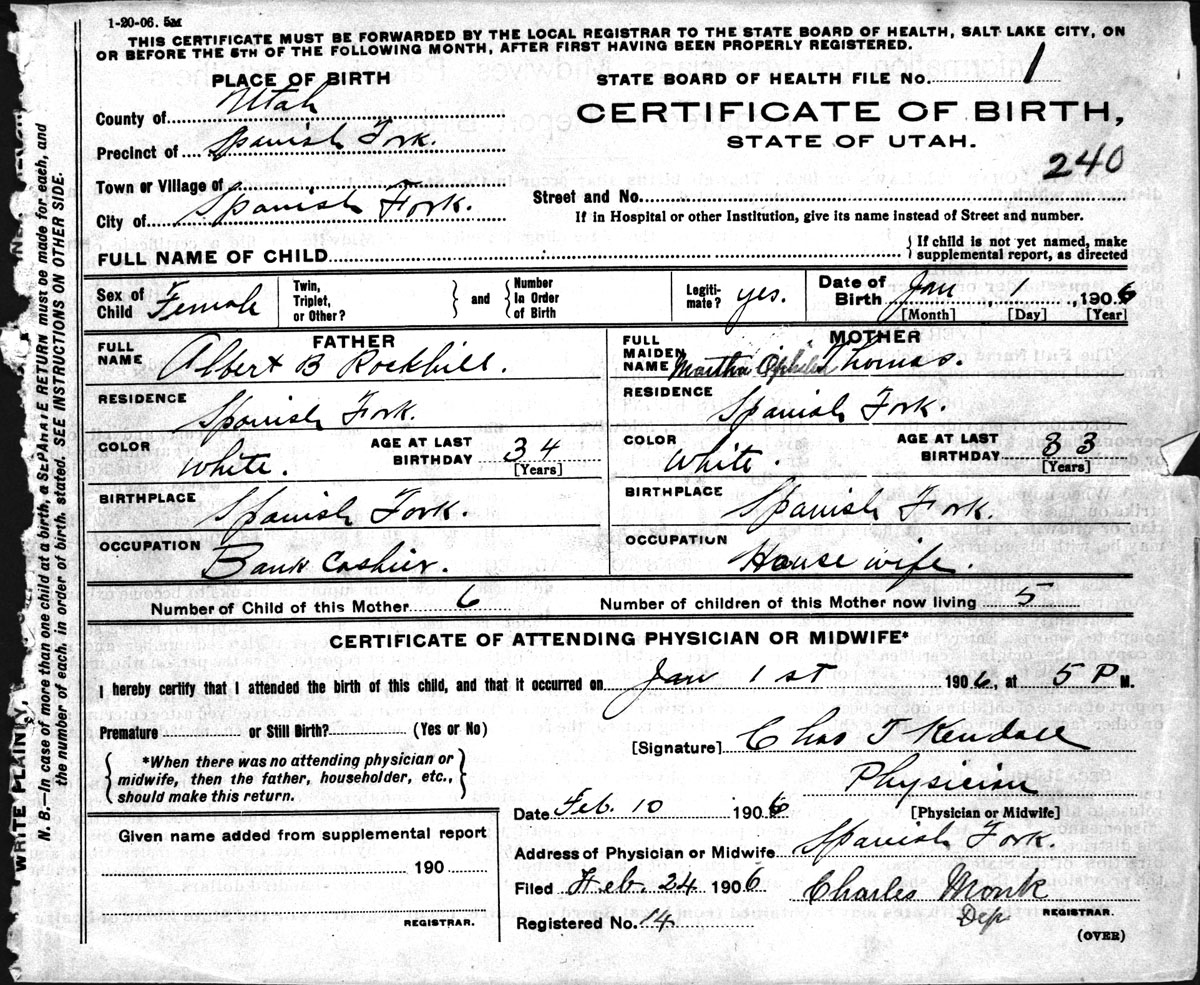 1-20-06. 5M
THIS CERTIFICATE MUST BE FORWARDED BY THE LOCAL REGISTRAR TO THE STATE BOARD OF HEALTH, SALT LAKE CITY, ON
OR BEFORE THE 5TH OF THE FOLLOWING MONTH, AFTER FIRST HAVING BEEN PROPERLY REGISTERED.
PLACE OF BIRTH
STATE BOARD OF HEALTH FILE No. 1
County of Utah
CERTIFICATE OF BIRTH,
STATE OF UTAH.
Precinct of Spanish Fork.
240
Town or Village of
Street and No.
City of Spanish Fork.
If in Hospital or other Institution, give its name instead of Street and number.
FULL NAME OF CHILD
} If child is not yet named, make
supplemental report, as directed
Sex of Child Female
Twin, Triplet, or Other? } and { Number In Order of Birth
Legiti- mate? yes.
Date of Birth Jan 1, 1906
[Month] [Day] [Year]
FATHER
FULL NAME Albert B Rockhill.
RESIDENCE Spanish Fork.
COLOR White. AGE AT LAST BIRTHDAY 34
[Years]
BIRTHPLACE Spanish Fork.
OCCUPATION Bank Cashier.
MOTHER
FULL MAIDEN NAME Martha Thomas.
RESIDENCE Spanish Fork.
COLOR White. AGE AT LAST BIRTHDAY 33
[Years]
BIRTHPLACE Spanish Fork.
OCCUPATION House wife.
Number of Child of this Mother 6 Number of children of this Mother now living 5
CERTIFICATE OF ATTENDING PHYSICIAN OR MIDWIFE*
I hereby certify that I attended the birth of this child, and that it occurred on Jan 1st 1906, at 5 P M.
Premature or Still Birth? (Yes or No)
[Signature] Chas T Kendall
{ *When there was no attending physician or
midwife, then the father, householder, etc.,
should make this return. }
Physician
[Physician or Midwife]
Date Feb. 10 1906
Given name added from supplemental report
190
REGISTRAR.
Address of Physician or Midwife Spanish Fork.
Filed Feb. 24 1906 Charles Monk
Dep REGISTRAR.
Registered No. 14
(OVER)
WRITE PLAINLY,
N. B.—In case of more than one child at a birth, a SEPARATE RETURN must be made for each, and
the number of each, in order of birth, stated. SEE INSTRUCTIONS ON OTHER SIDE.